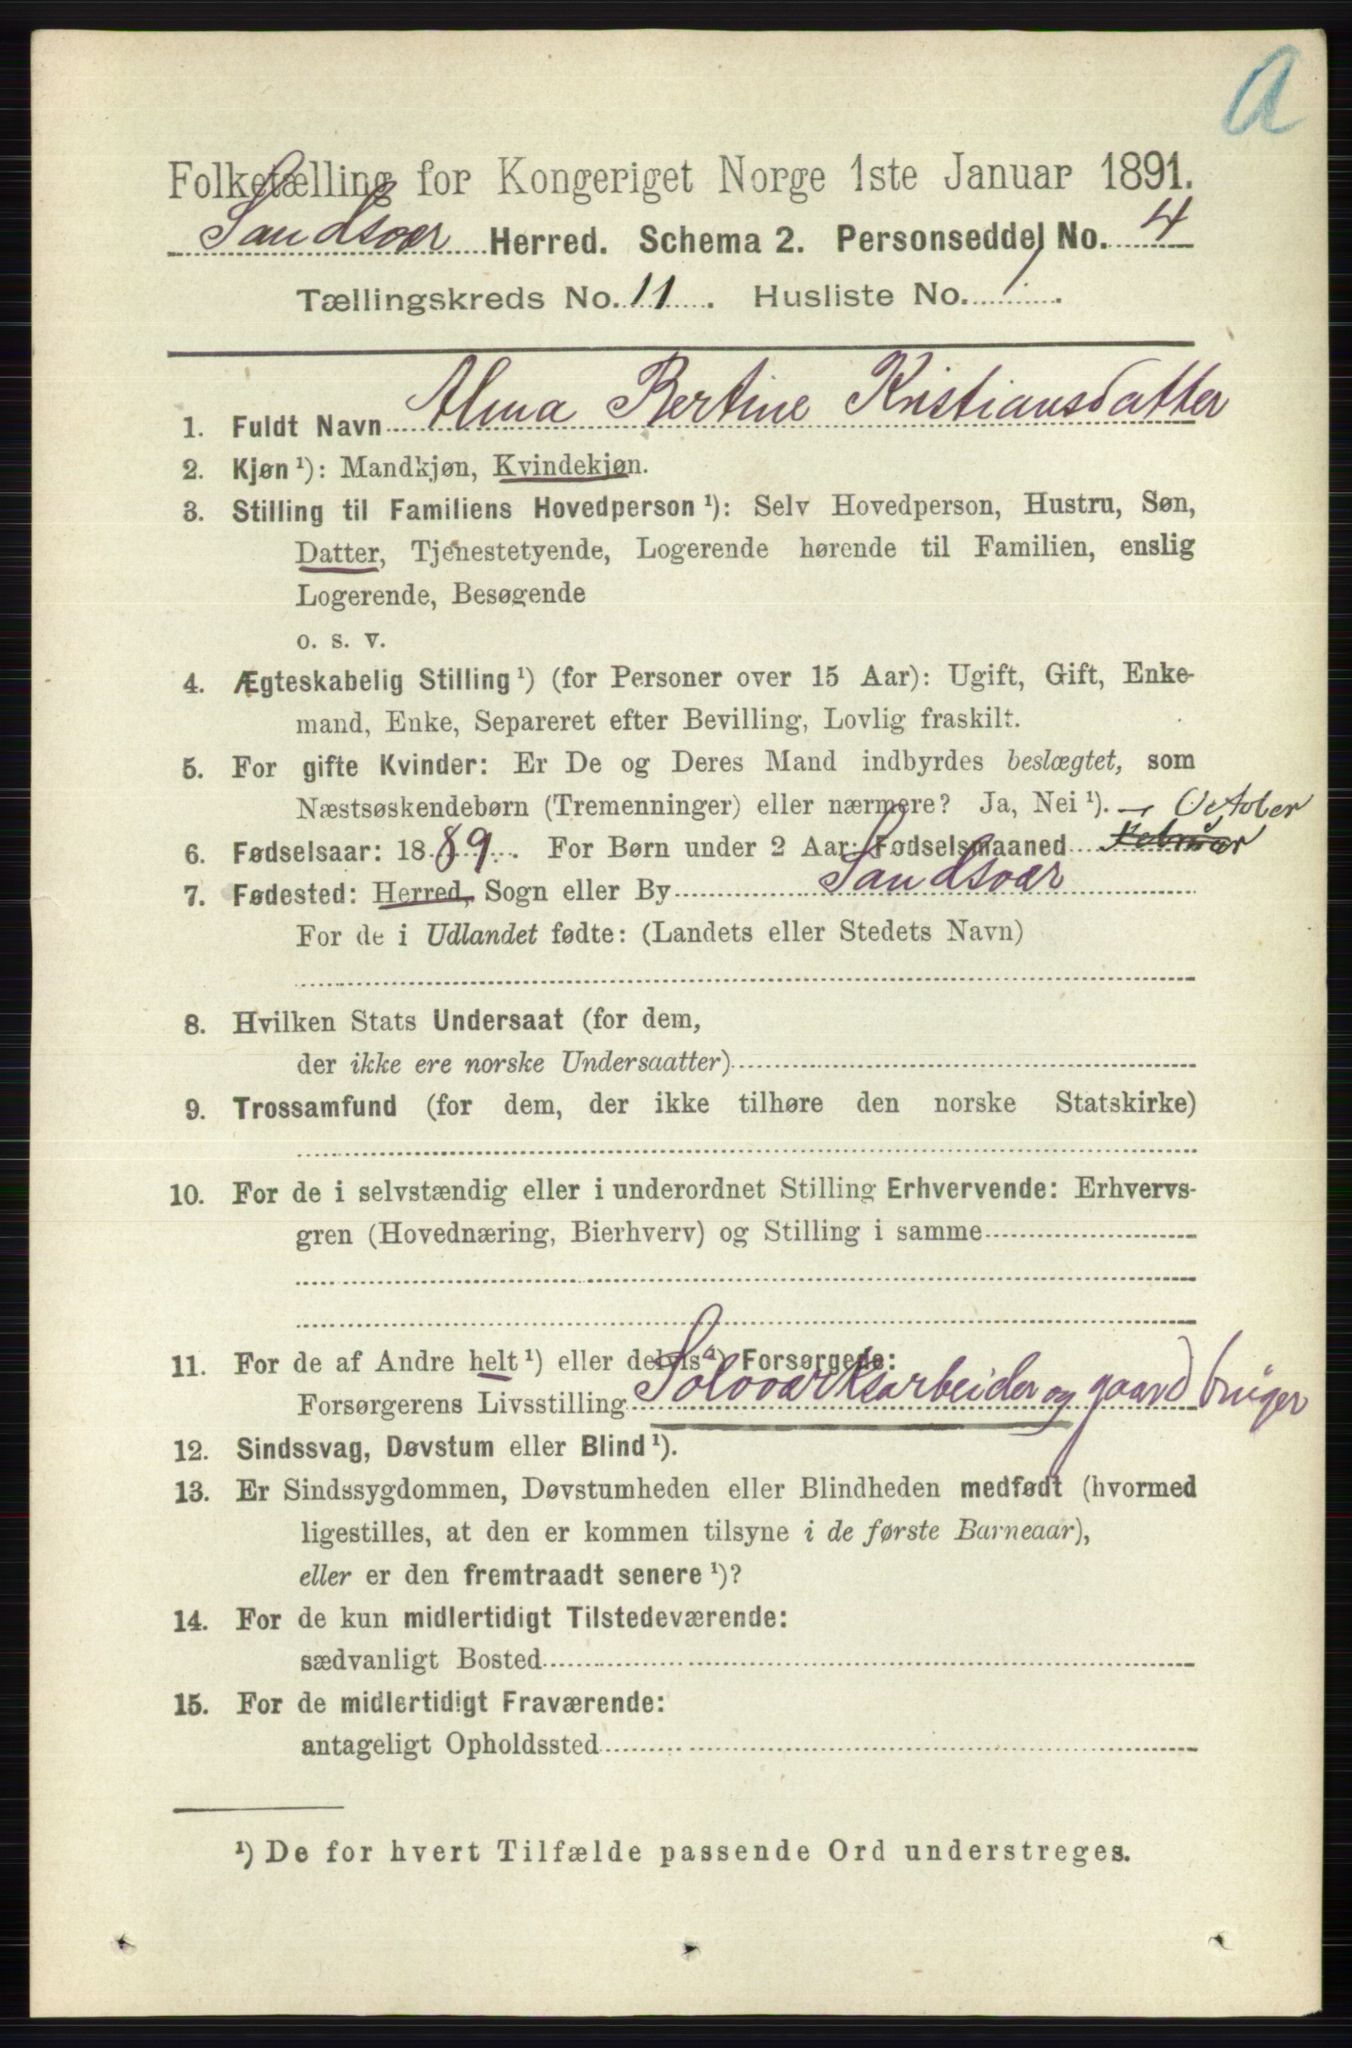 A
Folketælling for Kongeriget Norge 1ste Januar 1891.
Sandsvær Herred. Schema 2. Personseddel No. 4
Tællingskreds No. 11. Husliste No. 1.
1. Fuldt Navn Alma Bertine Kristiansdatter
2. Kjøn ¹): Mandkjøn, Kvindekjøn.
3. Stilling til Familiens Hovedperson ¹): Selv Hovedperson, Hustru, Søn,
Datter, Tjenestetyende, Logerende hørende til Familien, enslig
Logerende, Besøgende
o. s. v.
4. Ægteskabelig Stilling ¹) (for Personer over 15 Aar): Ugift, Gift, Enke-
mand, Enke, Separeret efter Bevilling, Lovlig fraskilt.
5. For gifte Kvinder: Er De og Deres Mand indbyrdes beslægtet, som
Næstsøskendebørn (Tremenninger) eller nærmere? Ja, Nei ¹). — October
6. Fødselsaar: 1889. For Børn under 2 Aar: Fødselsmaaned Februar
7. Fødested: Herred, Sogn eller By Sandsvær
For de i Udlandet fødte: (Landets eller Stedets Navn)
8. Hvilken Stats Undersaat (for dem,
der ikke ere norske Undersaatter)
9. Trossamfund (for dem, der ikke tilhøre den norske Statskirke)
10. For de i selvstændig eller i underordnet Stilling Erhvervende: Erhvervs-
gren (Hovednæring, Bierhverv) og Stilling i samme
11. For de af Andre helt ¹) eller delvis ¹) Forsørgede:
Forsørgerens Livsstilling Sølvværksarbeider og gaardbruger
12. Sindssvag, Døvstum eller Blind ¹).
13. Er Sindssygdommen, Døvstumheden eller Blindheden medfødt (hvormed
ligestilles, at den er kommen tilsyne i de første Barneaar),
eller er den fremtraadt senere ¹)?
14. For de kun midlertidigt Tilstedeværende:
sædvanligt Bosted
15. For de midlertidigt Fraværende:
antageligt Opholdssted
¹) De for hvert Tilfælde passende Ord understreges.